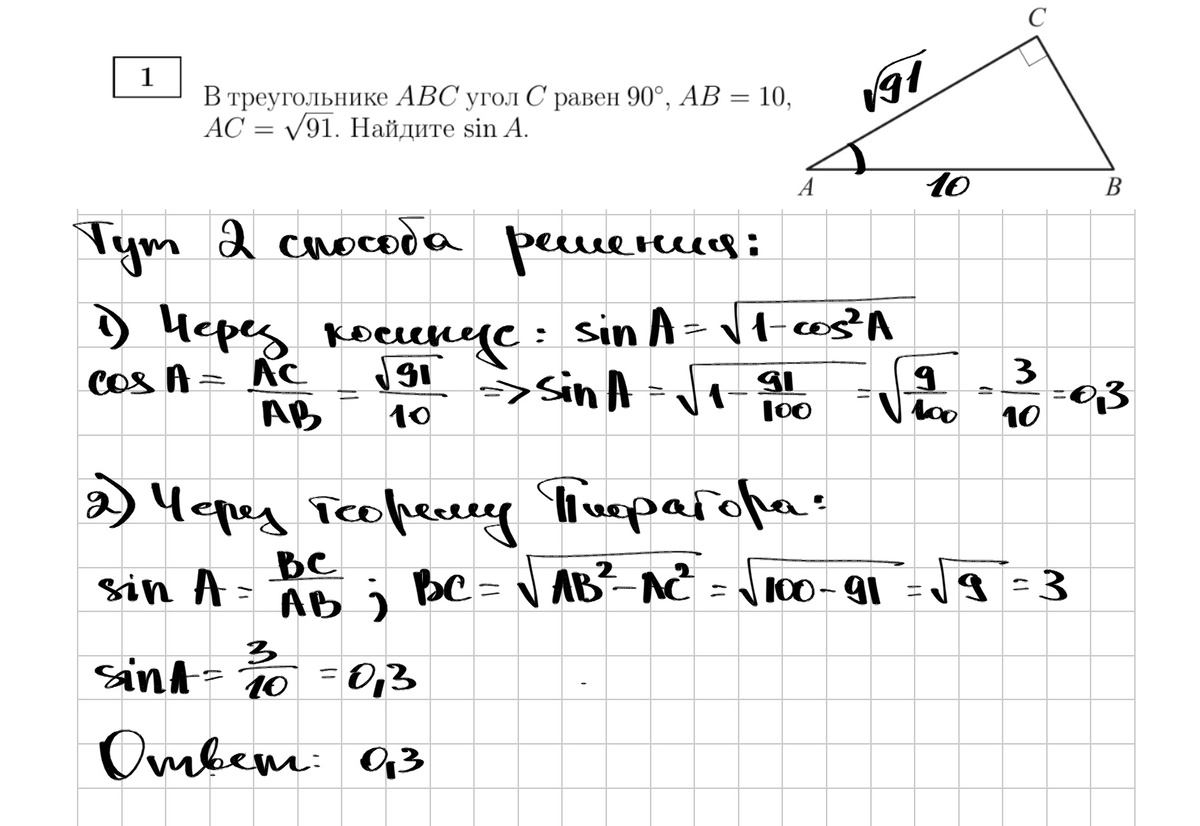 1
В треугольнике ABC угол C равен 90°, AB = 10,
AC = √91. Найдите sin A.
C
√91
A
10
B
Тут 2 способа решения:
1) Через косинус: sin A = √1-cos²A
cos A = AC/AB = √91/10 => sin A = √1-91/100 = √9/100 = 3/10 = 0,3
2) Через теорему Пифагора:
sin A = BC/AB ; BC = √AB²-AC² = √100-91 = √9 = 3
sin A = 3/10 = 0,3
Ответ: 0,3